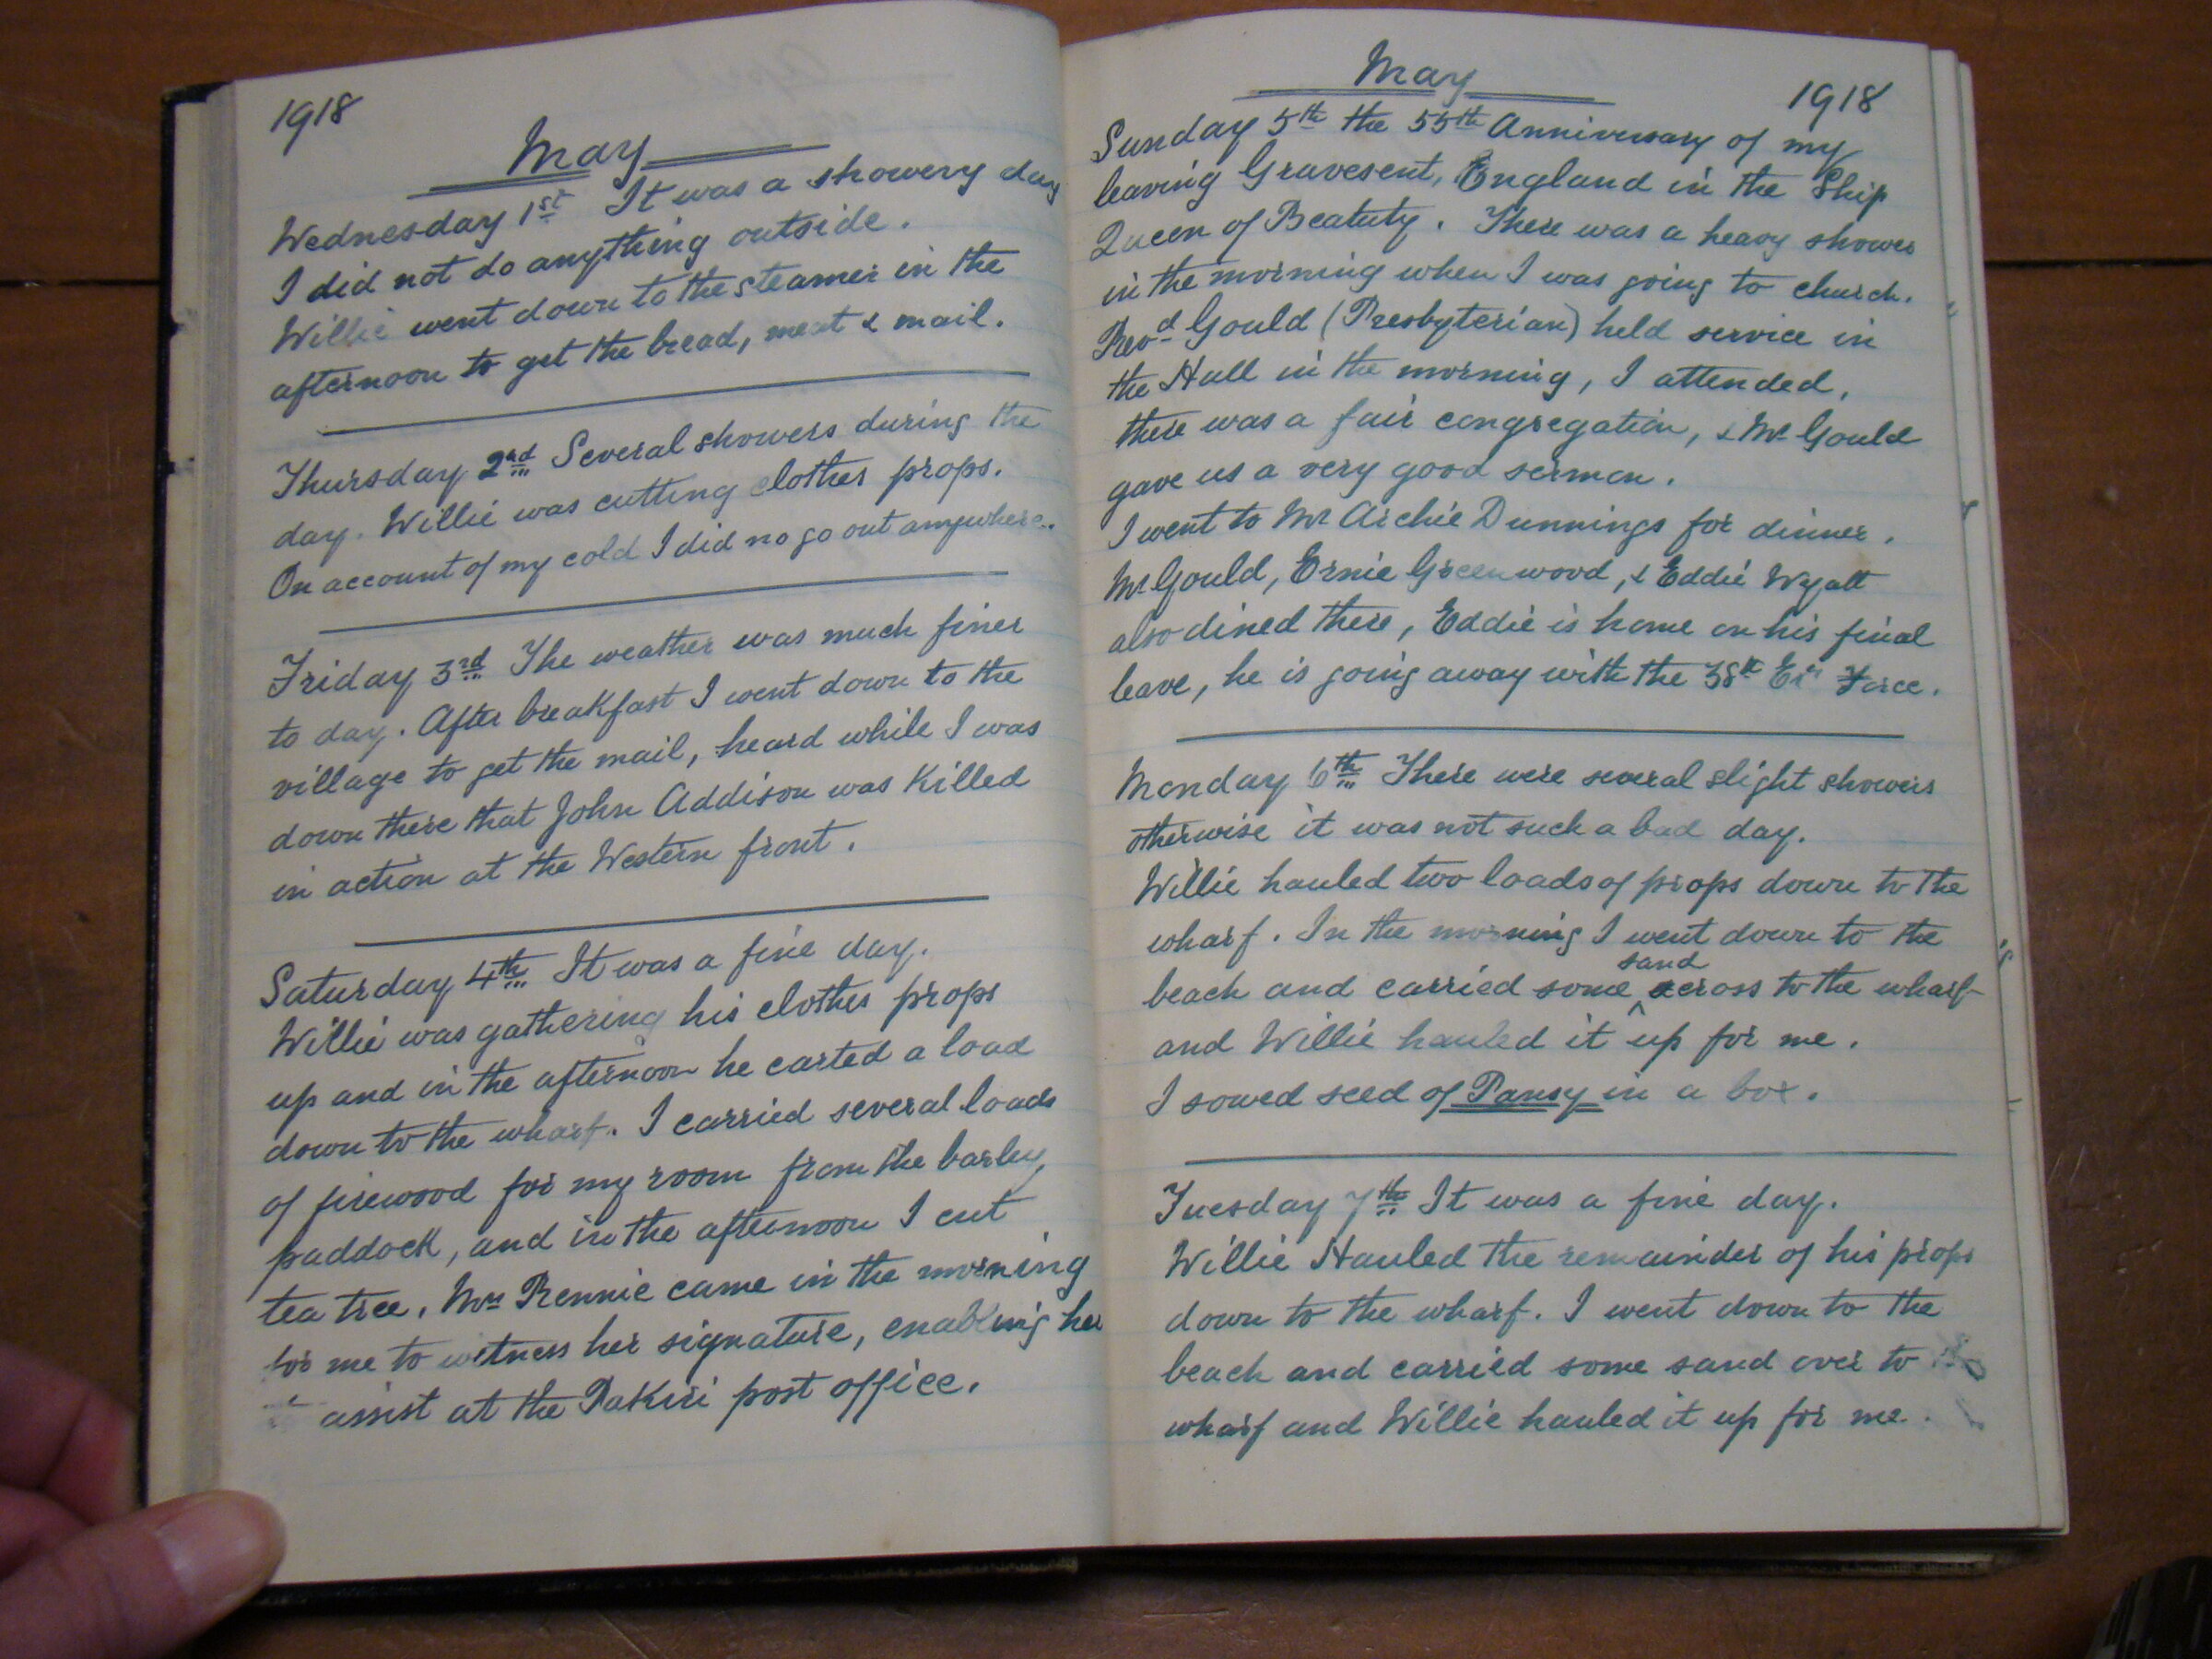 1918
May
Wednesday 1st It was a showery day
I did not do anything outside.
Willie went down to the steamer in the
afternoon to get the bread, meat & mail.
Thursday 2nd Several showers during the
day. Willie was cutting clothes props.
On account of my cold I did no go out anywhere.
Friday 3rd The weather was much finer
to day. After breakfast I went down to the
village to get the mail, heard while I was
down there that John Addison was killed
in action at the Western front.
Saturday 4th It was a fine day.
Willie was gathering his clothes props
up and in the afternoon he carted a load
down to the wharf. I carried several loads
of firewood for my room from the barley
paddock, and in the afternoon I cut
tea tree. Mrs Rennie came in the morning
for me to witness her signature, enabling her
assist at the Pakiri post office.
May
1918
Sunday 5th the 55th Anniversary of my
leaving Gravesent, England in the Ship
Queen of Beatuty. There was a heavy shower
in the morning when I was going to church.
Revd Gould (Presbyterian) held service in
the Hall in the morning, I attended,
there was a fair congregation, & Mr Gould
gave us a very good sermon.
I went to Mr Archie Dunnings for dinner.
Mr Gould, Ernie Greenwood, & Eddie Wyatt
also dined there, Eddie is home on his final
leave, he is going away with the 38th Force.
Monday 6th There were several slight showers
otherwise it was not such a bad day.
Willie hauled two loads of props down to the
wharf. In the morning I went down to the
beach and carried some sand across to the wharf
and Willie hauled it up for me.
I sowed seed of Pansy in a box.
Tuesday 7th It was a fine day.
Willie Hauled the remainder of his props
down to the wharf. I went down to the
beach and carried some sand over to
wharf and Willie hauled it up for me.